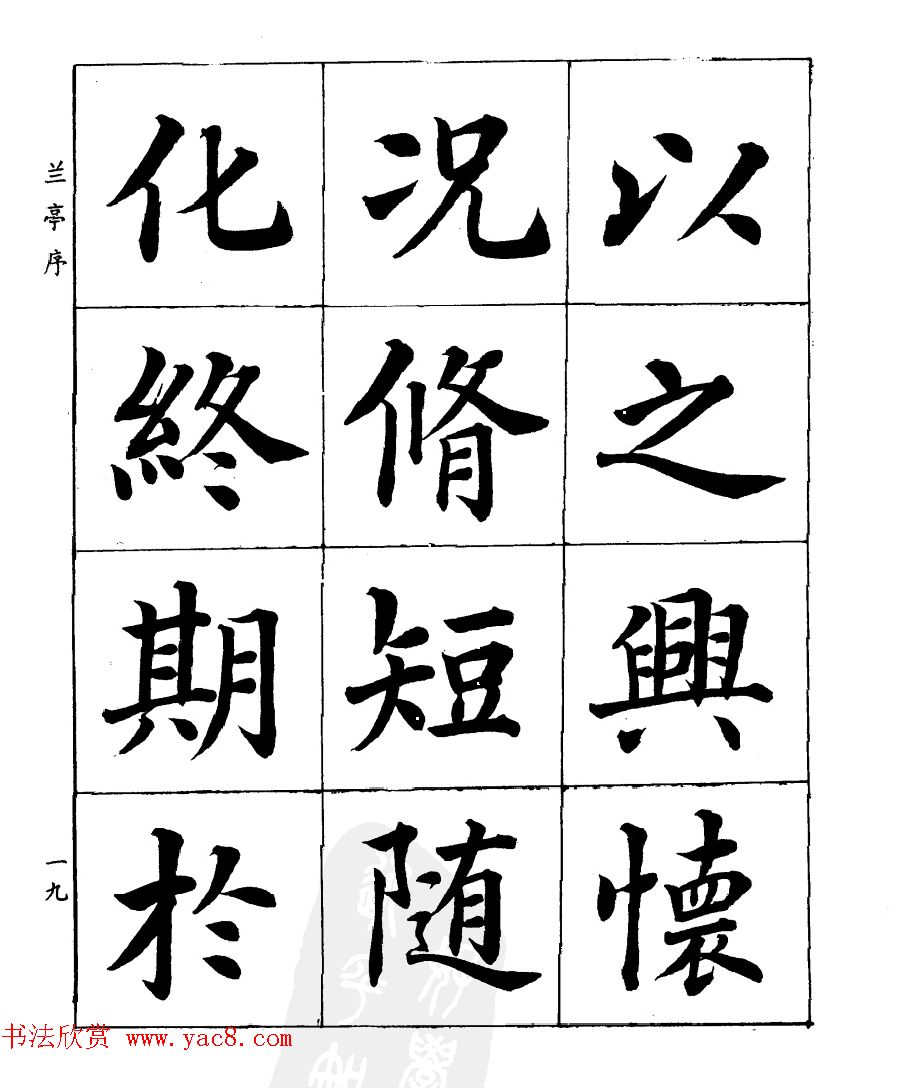 以之興懷
况脩短随
化終期於
兰亭序
一九
书法欣赏 www.yac8.com